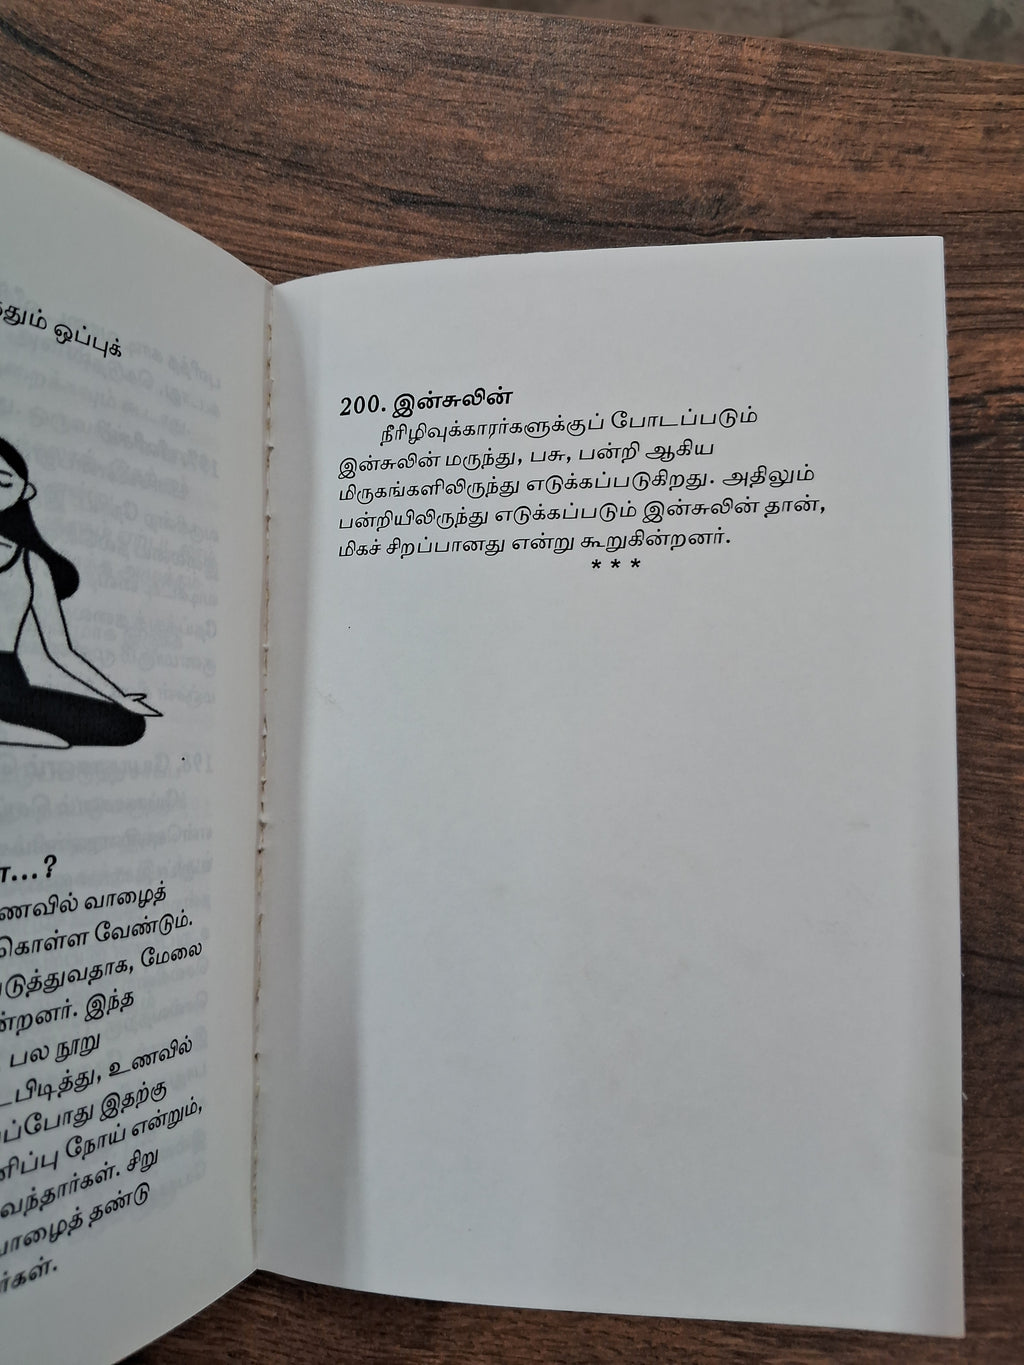 ஒப்புக்
...?
வாழைத்
வேண்டும்.
மேலை
இந்த
பல நூறு
உணவில்
இதற்கு
நோய் என்றும்,
வந்தார்கள். சிறு
தண்டு
200. இன்சுலின்
நீரிழிவுக்காரர்களுக்குப் போடப்படும்
இன்சுலின் மருந்து, பசு, பன்றி ஆகிய
மிருகங்களிலிருந்து எடுக்கப்படுகிறது. அதிலும்
பன்றியிலிருந்து எடுக்கப்படும் இன்சுலின் தான்,
மிகச் சிறப்பானது என்று கூறுகின்றனர்.
* * *